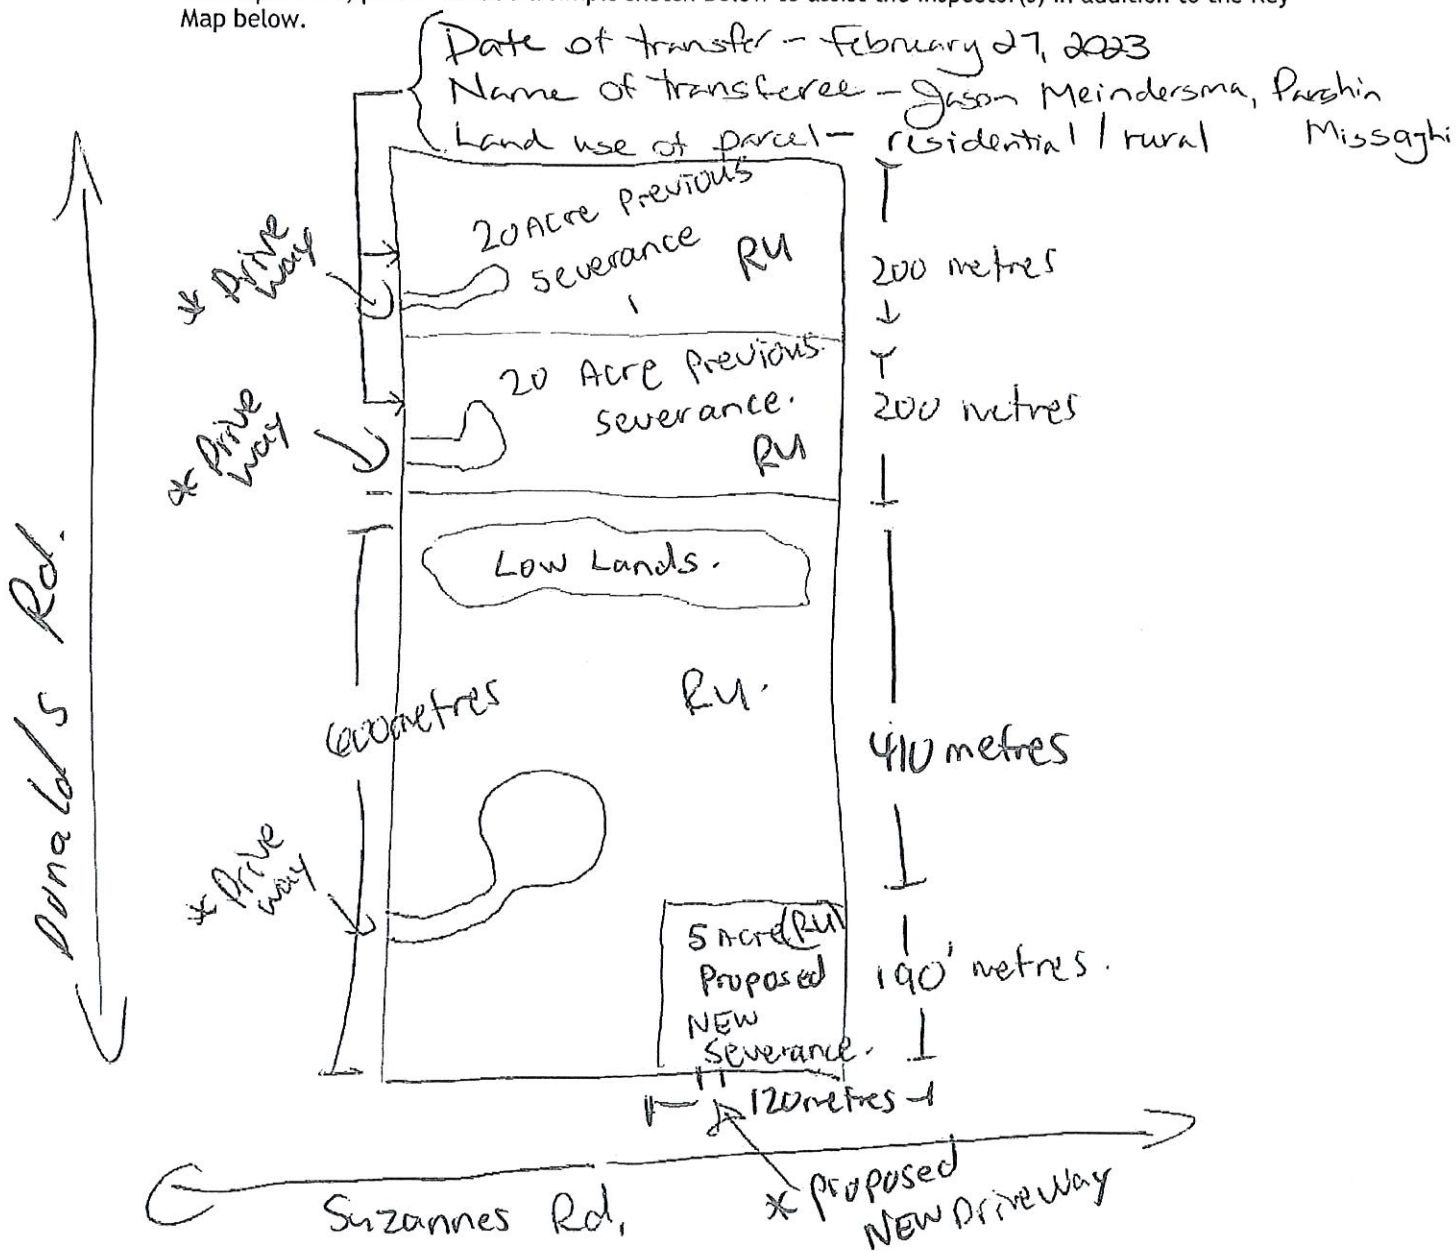 Map below.
Date of transfer - February 27, 2023
Name of transferee - Jason Meindersma, Parshin
Missaghi
Land use of parcel - residential / rural
20 Acre Previous
severance
RU
200 metres
* Drive
way
20 Acre Previous
severance.
RU
200 metres
* Drive
way
Low Lands.
Donalds Rd.
600 metres
RU.
410 metres
* Drive
way
5 Acre (RU)
Proposed
NEW
severance.
190' metres.
120 metres
Suzannes Rd,
* Proposed
NEW DriveWay